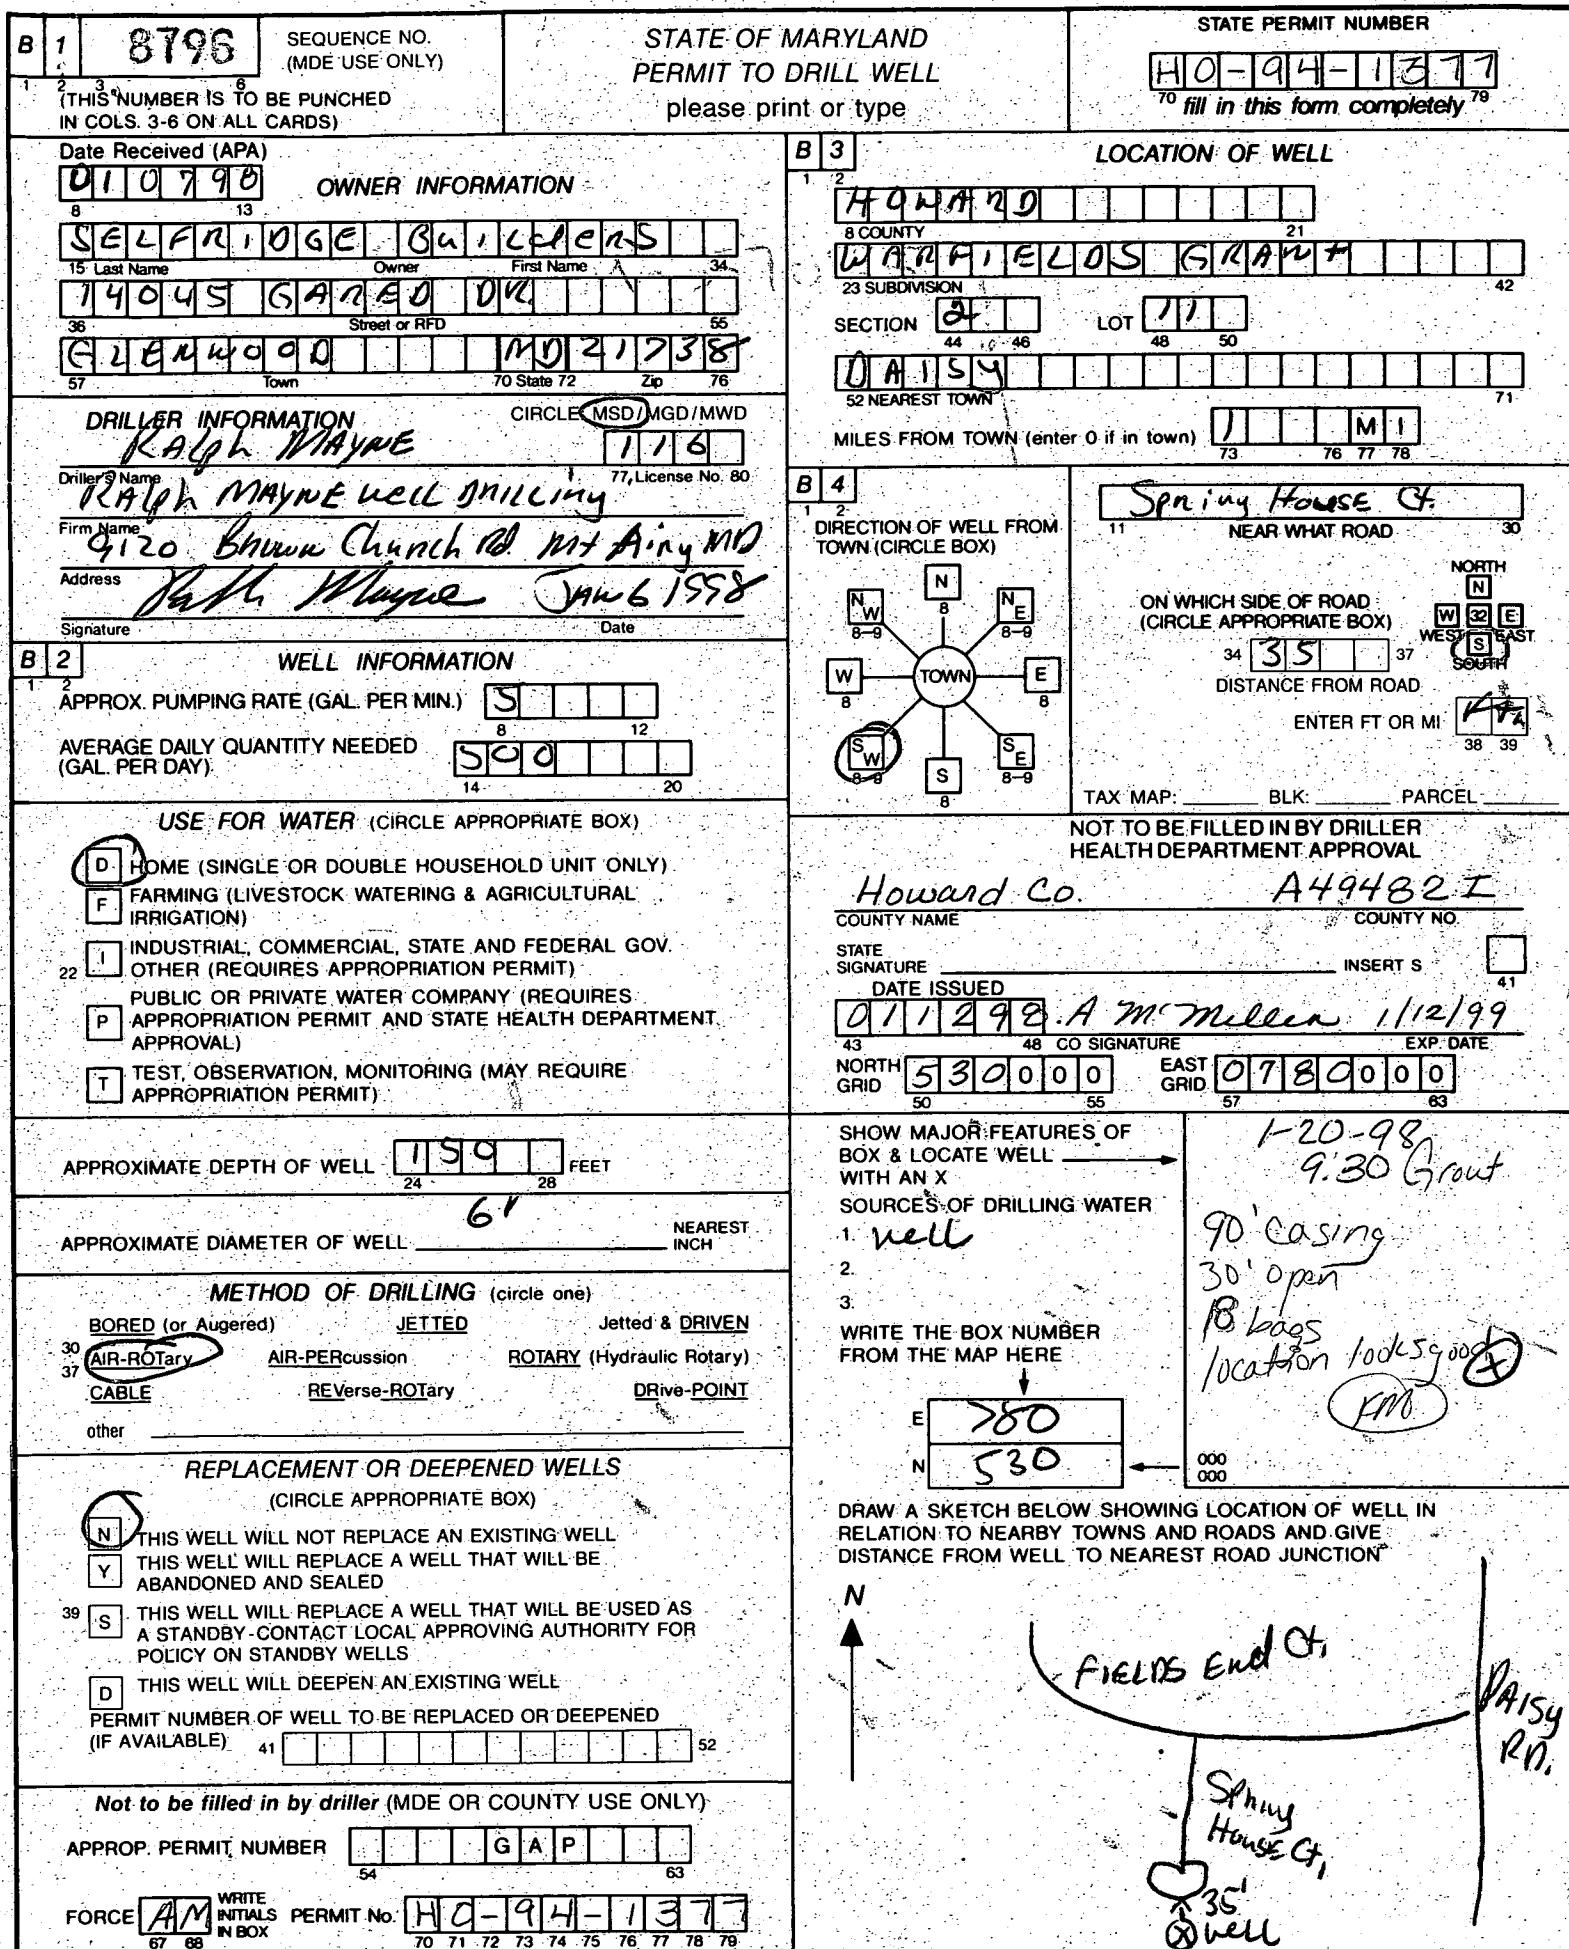 B 1 8796 SEQUENCE NO. (MDE USE ONLY)
1 2 3 6
(THIS NUMBER IS TO BE PUNCHED
IN COLS. 3-6 ON ALL CARDS)
STATE OF MARYLAND
PERMIT TO DRILL WELL
please print or type
STATE PERMIT NUMBER
HO-94-1377
70 fill in this form completely 79
Date Received (APA)
010798
8 13
OWNER INFORMATION
SELFRIDGE BuilderS
15 Last Name Owner First Name 34
14045 GARED DR
36 Street or RFD 55
GLENWOOD MD 21738
57 Town 70 State 72 Zip 76
DRILLER INFORMATION CIRCLE MSD/MGD/MWD
RALph MAYNE 116
Driller's Name 77 License No. 80
RALph MAYNE well Drilling
Firm Name
9120 Brown Church Rd. Mt Airy MD
Address
Ralph Mayne JAN 6 1998
Signature Date
B 2 WELL INFORMATION
1 2
APPROX. PUMPING RATE (GAL. PER MIN.) 5
8 12
AVERAGE DAILY QUANTITY NEEDED
(GAL. PER DAY) 500
14 20
USE FOR WATER (CIRCLE APPROPRIATE BOX)
D HOME (SINGLE OR DOUBLE HOUSEHOLD UNIT ONLY)
F FARMING (LIVESTOCK WATERING & AGRICULTURAL
IRRIGATION)
22 I INDUSTRIAL, COMMERCIAL, STATE AND FEDERAL GOV.
OTHER (REQUIRES APPROPRIATION PERMIT)
P PUBLIC OR PRIVATE WATER COMPANY (REQUIRES
APPROPRIATION PERMIT AND STATE HEALTH DEPARTMENT
APPROVAL)
T TEST, OBSERVATION, MONITORING (MAY REQUIRE
APPROPRIATION PERMIT)
APPROXIMATE DEPTH OF WELL 150 FEET
24 28
APPROXIMATE DIAMETER OF WELL 6" NEAREST
INCH
METHOD OF DRILLING (circle one)
BORED (or Augered) JETTED Jetted & DRIVEN
30 AIR-ROTary AIR-PERcussion ROTARY (Hydraulic Rotary)
37
CABLE REVerse-ROTary DRive-POINT
other
REPLACEMENT OR DEEPENED WELLS
(CIRCLE APPROPRIATE BOX)
N THIS WELL WILL NOT REPLACE AN EXISTING WELL
Y THIS WELL WILL REPLACE A WELL THAT WILL BE
ABANDONED AND SEALED
39 S THIS WELL WILL REPLACE A WELL THAT WILL BE USED AS
A STANDBY-CONTACT LOCAL APPROVING AUTHORITY FOR
POLICY ON STANDBY WELLS
D THIS WELL WILL DEEPEN AN EXISTING WELL
PERMIT NUMBER OF WELL TO BE REPLACED OR DEEPENED
(IF AVAILABLE) 41 52
Not to be filled in by driller (MDE OR COUNTY USE ONLY)
APPROP. PERMIT NUMBER GAP
54 63
FORCE AM WRITE INITIALS IN BOX PERMIT No. HO-94-1377
67 68 70 71 72 73 74 75 76 77 78 79
B 3 LOCATION OF WELL
1 2
HOWARD
8 COUNTY 21
WARFIELDS GRANT
23 SUBDIVISION 42
SECTION 2 LOT 11
44 46 48 50
DAISY
52 NEAREST TOWN 71
MILES FROM TOWN (enter 0 if in town) 1 MI
73 76 77 78
B 4 Spring House Ct.
1 2 11 NEAR WHAT ROAD 30
DIRECTION OF WELL FROM
TOWN (CIRCLE BOX)
N 8
NW 8-9
NE 8-9
W 8
TOWN
E 8
SW 8-9
S 8
SE 8-9
ON WHICH SIDE OF ROAD
(CIRCLE APPROPRIATE BOX)
NORTH
N
W 32 E
WEST EAST
S
SOUTH
34 35 37
DISTANCE FROM ROAD
ENTER FT OR MI
38 39
TAX MAP: BLK: PARCEL
NOT TO BE FILLED IN BY DRILLER
HEALTH DEPARTMENT APPROVAL
Howard Co. A49482 I
COUNTY NAME COUNTY NO.
STATE
SIGNATURE INSERT S
41
DATE ISSUED
011298 A McMillen 1/12/99
43 48 CO SIGNATURE EXP. DATE
NORTH GRID 530000 EAST GRID 0780000
50 55 57 63
SHOW MAJOR FEATURES OF
BOX & LOCATE WELL
WITH AN X
SOURCES OF DRILLING WATER
1. well
2.
3.
WRITE THE BOX NUMBER
FROM THE MAP HERE
E 780
N 530
1-20-98
9:30 Grout
90' casing
30' open
18 bags
location looks good
X
KM
000
000
DRAW A SKETCH BELOW SHOWING LOCATION OF WELL IN
RELATION TO NEARBY TOWNS AND ROADS AND GIVE
DISTANCE FROM WELL TO NEAREST ROAD JUNCTION
N
FIELDS End Ct.
DAISY
RD.
Spring
House Ct.
35'
X well